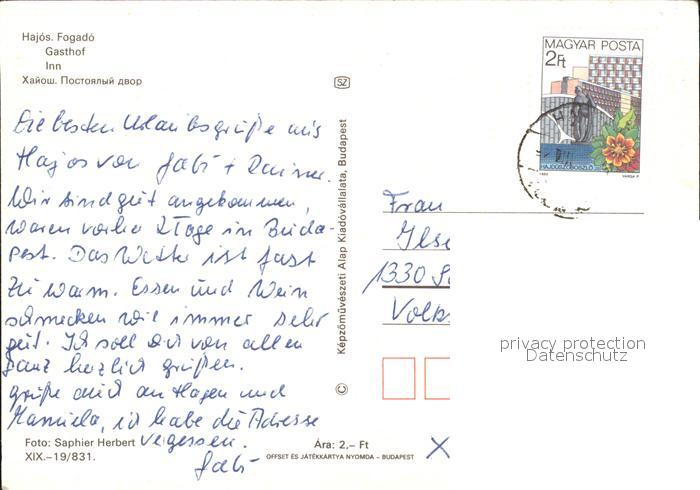 Hajós. Fogadó
Gasthof
Inn
Хайош. Постоялый двор
Die besten Urlaubsgrüße aus
Hajos von Gabi + Rainer.
Wir sind gut angekommen,
waren vorher 2 Tage in Buda-
pest. Das Wetter ist fast
zu warm. Essen und Wein
schmecken wie immer sehr
gut. Ich soll Dich von allen
ganz herzlich grüßen.
Grüße auch an Hagen und
Manuela, ich habe die Adresse
vergessen.
Gabi
Foto: Saphier Herbert
XIX.–19/831.
Ára: 2,– Ft
OFFSET ÉS JÁTÉKKÁRTYA NYOMDA – BUDAPEST
SZ
© Képzőművészeti Alap Kiadóvállalata, Budapest
MAGYAR POSTA
2Ft
HAJDÚSZOBOSZLÓ
1983 VARGA P.
Frau
Ilse
1330
Volks
privacy protection
Datenschutz